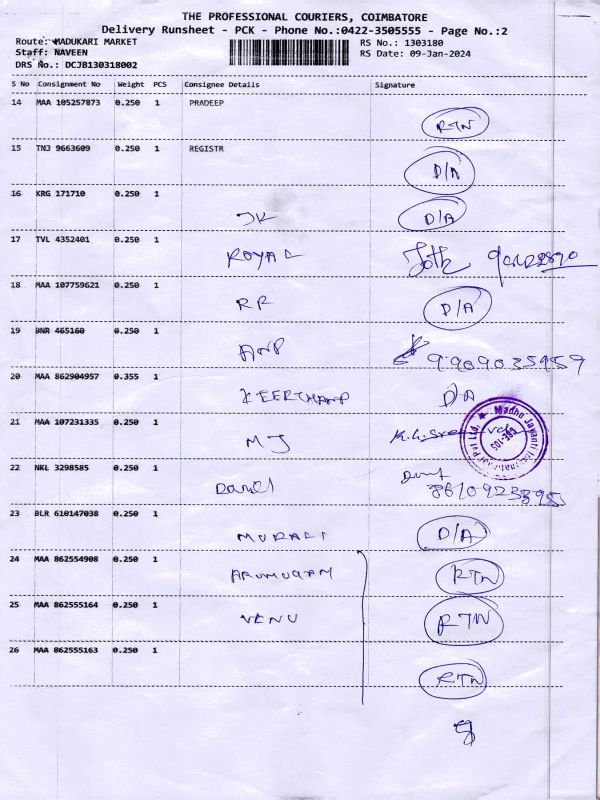 THE PROFESSIONAL COURIERS, COIMBATORE
Delivery Runsheet - PCK - Phone No.:0422-3505555 - Page No.:2
Route: MADUKARI MARKET RS No.: 1303180
Staff: NAVEEN RS Date: 09-Jan-2024
DRS No.: DCJB130318002
S No Consignment No Weight PCS Consignee Details Signature
14 MAA 105257873 0.250 1 PRADEEP
RTN
15 TNJ 9663609 0.250 1 REGISTR
D/A
16 KRG 171710 0.250 1
JK D/A
17 TVL 4352401 0.250 1
ROYAL
18 MAA 107759621 0.250 1
RR D/A
19 BNR 465160 0.250 1
ANP
20 MAA 862904957 0.355 1
KEERTHANA D/A
21 MAA 107231335 0.250 1
MJ
Madhu Jayanti International Pvt Ltd.
22 NKL 3298585 0.250 1
8610923395
23 BLR 610147038 0.250 1
MURALI D/A
24 MAA 862554908 0.250 1
ARUMUGAM RTN
25 MAA 862555164 0.250 1
VENU RTN
26 MAA 862555163 0.250 1
RTN